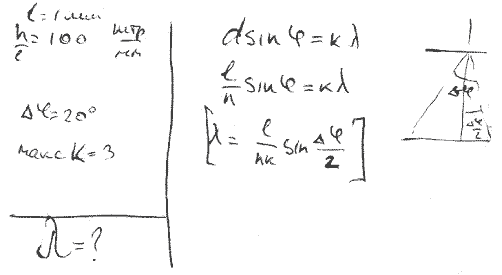 ℓ = 1 мм
n/ℓ = 100 штр/мм
Δφ = 20°
макс K = 3
λ = ?
d sin φ = кλ
ℓ/n sin φ = кλ
[λ = ℓ/nк sin Δφ/2]
Δφ
Δφ/2